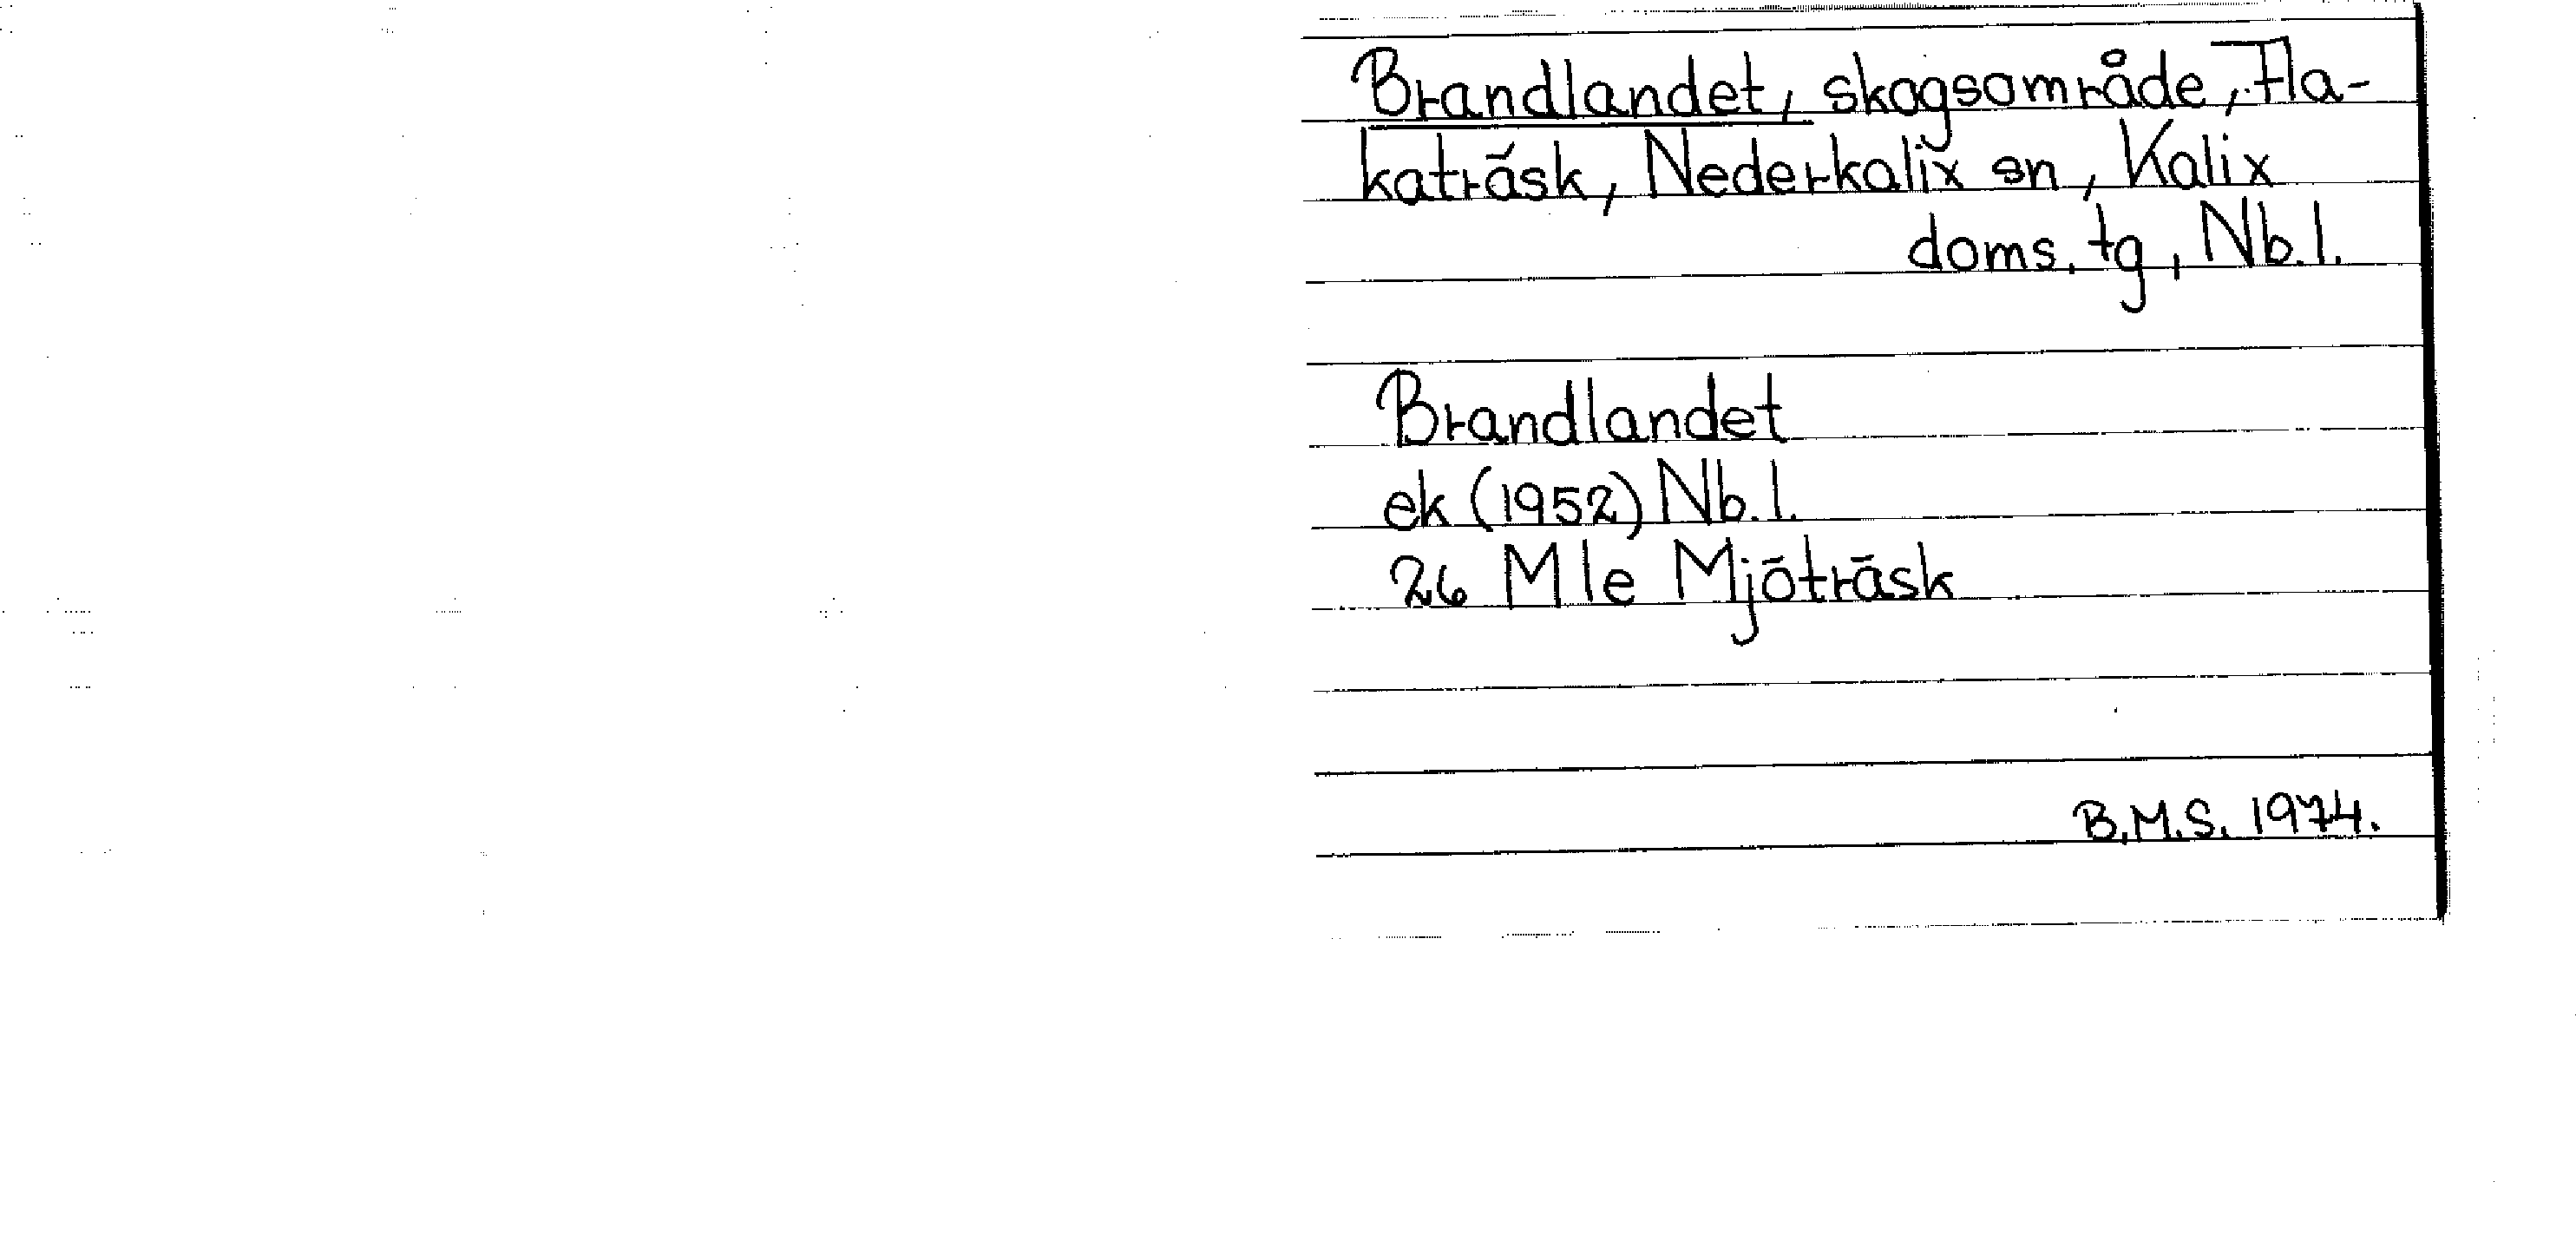 Brandlandet, skogsområde, Fla-
katräsk, Nederkalix sn, Kalix
doms. tg, Nb.l.
Brandlandet
ek (1952) Nb.l.
26 Mle Mjöträsk
B.M.S. 1974.